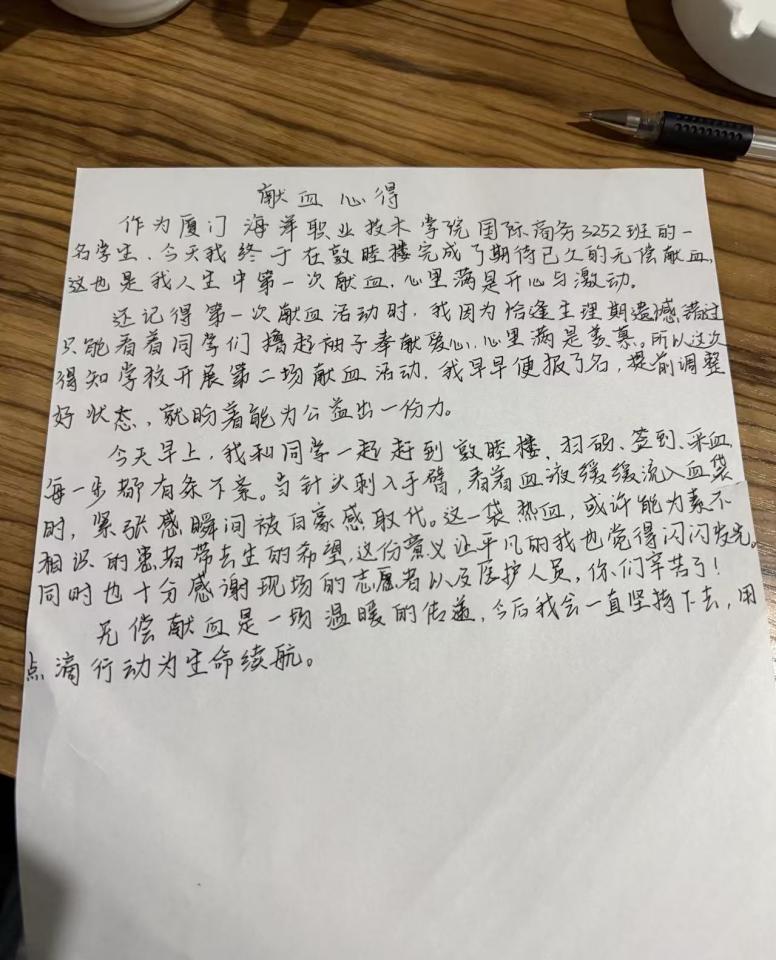 献血心得
作为厦门海洋职业技术学院国际商务3252班的一
名学生、今天我终于在敦睦楼完成了期待已久的无偿献血,
这也是我人生中第一次献血,心里满是开心与激动。
还记得第一次献血活动时,我因为恰逢生理期遗憾错过
只能看着同学们撸起袖子奉献爱心,心里满是羡慕。所以这次
得知学校开展第二场献血活动,我早早便报了名,提前调整
好状态,就盼着能为公益出一份力。
今天早上,我和同学一起赶到敦睦楼,扫码、签到、采血,
每一步都有条不紊。当针头刺入手臂,看着血液缓缓流入血袋
时,紧张感瞬间被自豪感取代。这一袋热血,或许能为素不
相识的患者带去生的希望,这份意义让平凡的我也觉得闪闪发光。
同时也十分感谢现场的志愿者以及医护人员,你们辛苦了!
无偿献血是一场温暖的传递,今后我会一直坚持下去,用
点滴行动为生命续航。